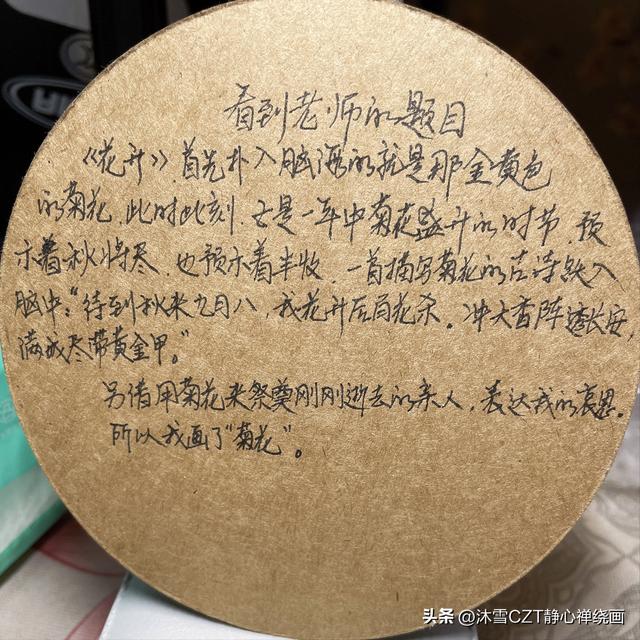 看到老师的题目
《花开》,首先扑入脑海的就是那金黄色
的菊花,此时此刻,正是一年中菊花盛开的时节,预
示着秋将尽,也预示着丰收,一首描写菊花的古诗跃入
脑中:“待到秋来九月八,我花开后百花杀。冲天香阵透长安,
满城尽带黄金甲。”
另借用菊花来祭奠刚刚逝去的亲人,表达我的哀思。
所以我画了“菊花”。
头条 @沐雪CZT静心禅绕画